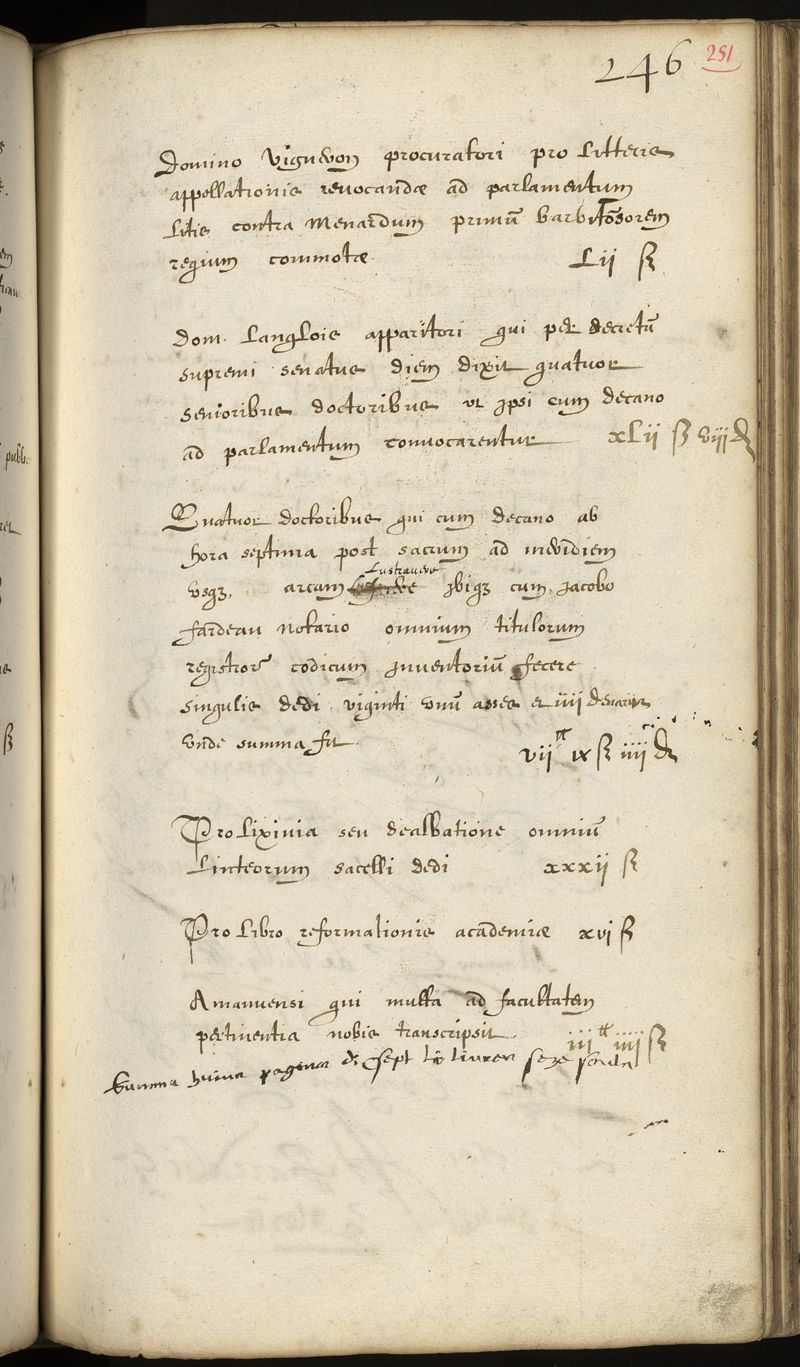 246 251
Domino Vignevon procuratori pro litteris
appellationis revocandæ ad parlamentum
litis contra Menardum primū barbitōsorem
regium commotæ. Lii ſ
Dom. Langlois apparitori qui per decretū
supremi senatus diem dixit quatuor
senioribus doctoribus ut ipsi cum decano
ad parlamentum convocarentur xLii ſ viij d
Quatuor doctoribus qui cum decano ab
hora septima post sacrum ad meridiem
usq3. arcam lustravere ibiq3 cum Jacobo
fardeau notario omnium titulorum
registror codicum inventoriū fecere
singulis dedi viginti unū asses et iiij denarios
unde summa fit. vii tt ix ſ iiij d
Pro lixivia seu dealbatione omniū
linteorum sacelli dedi xxxii ſ
Pro libro reformationis academiæ xvi ſ
Amanuensi qui multa ad facultatem
pertinentia nobis transcripsit. iij tt iiij ſ
Summa huius paginæ sept livres seze